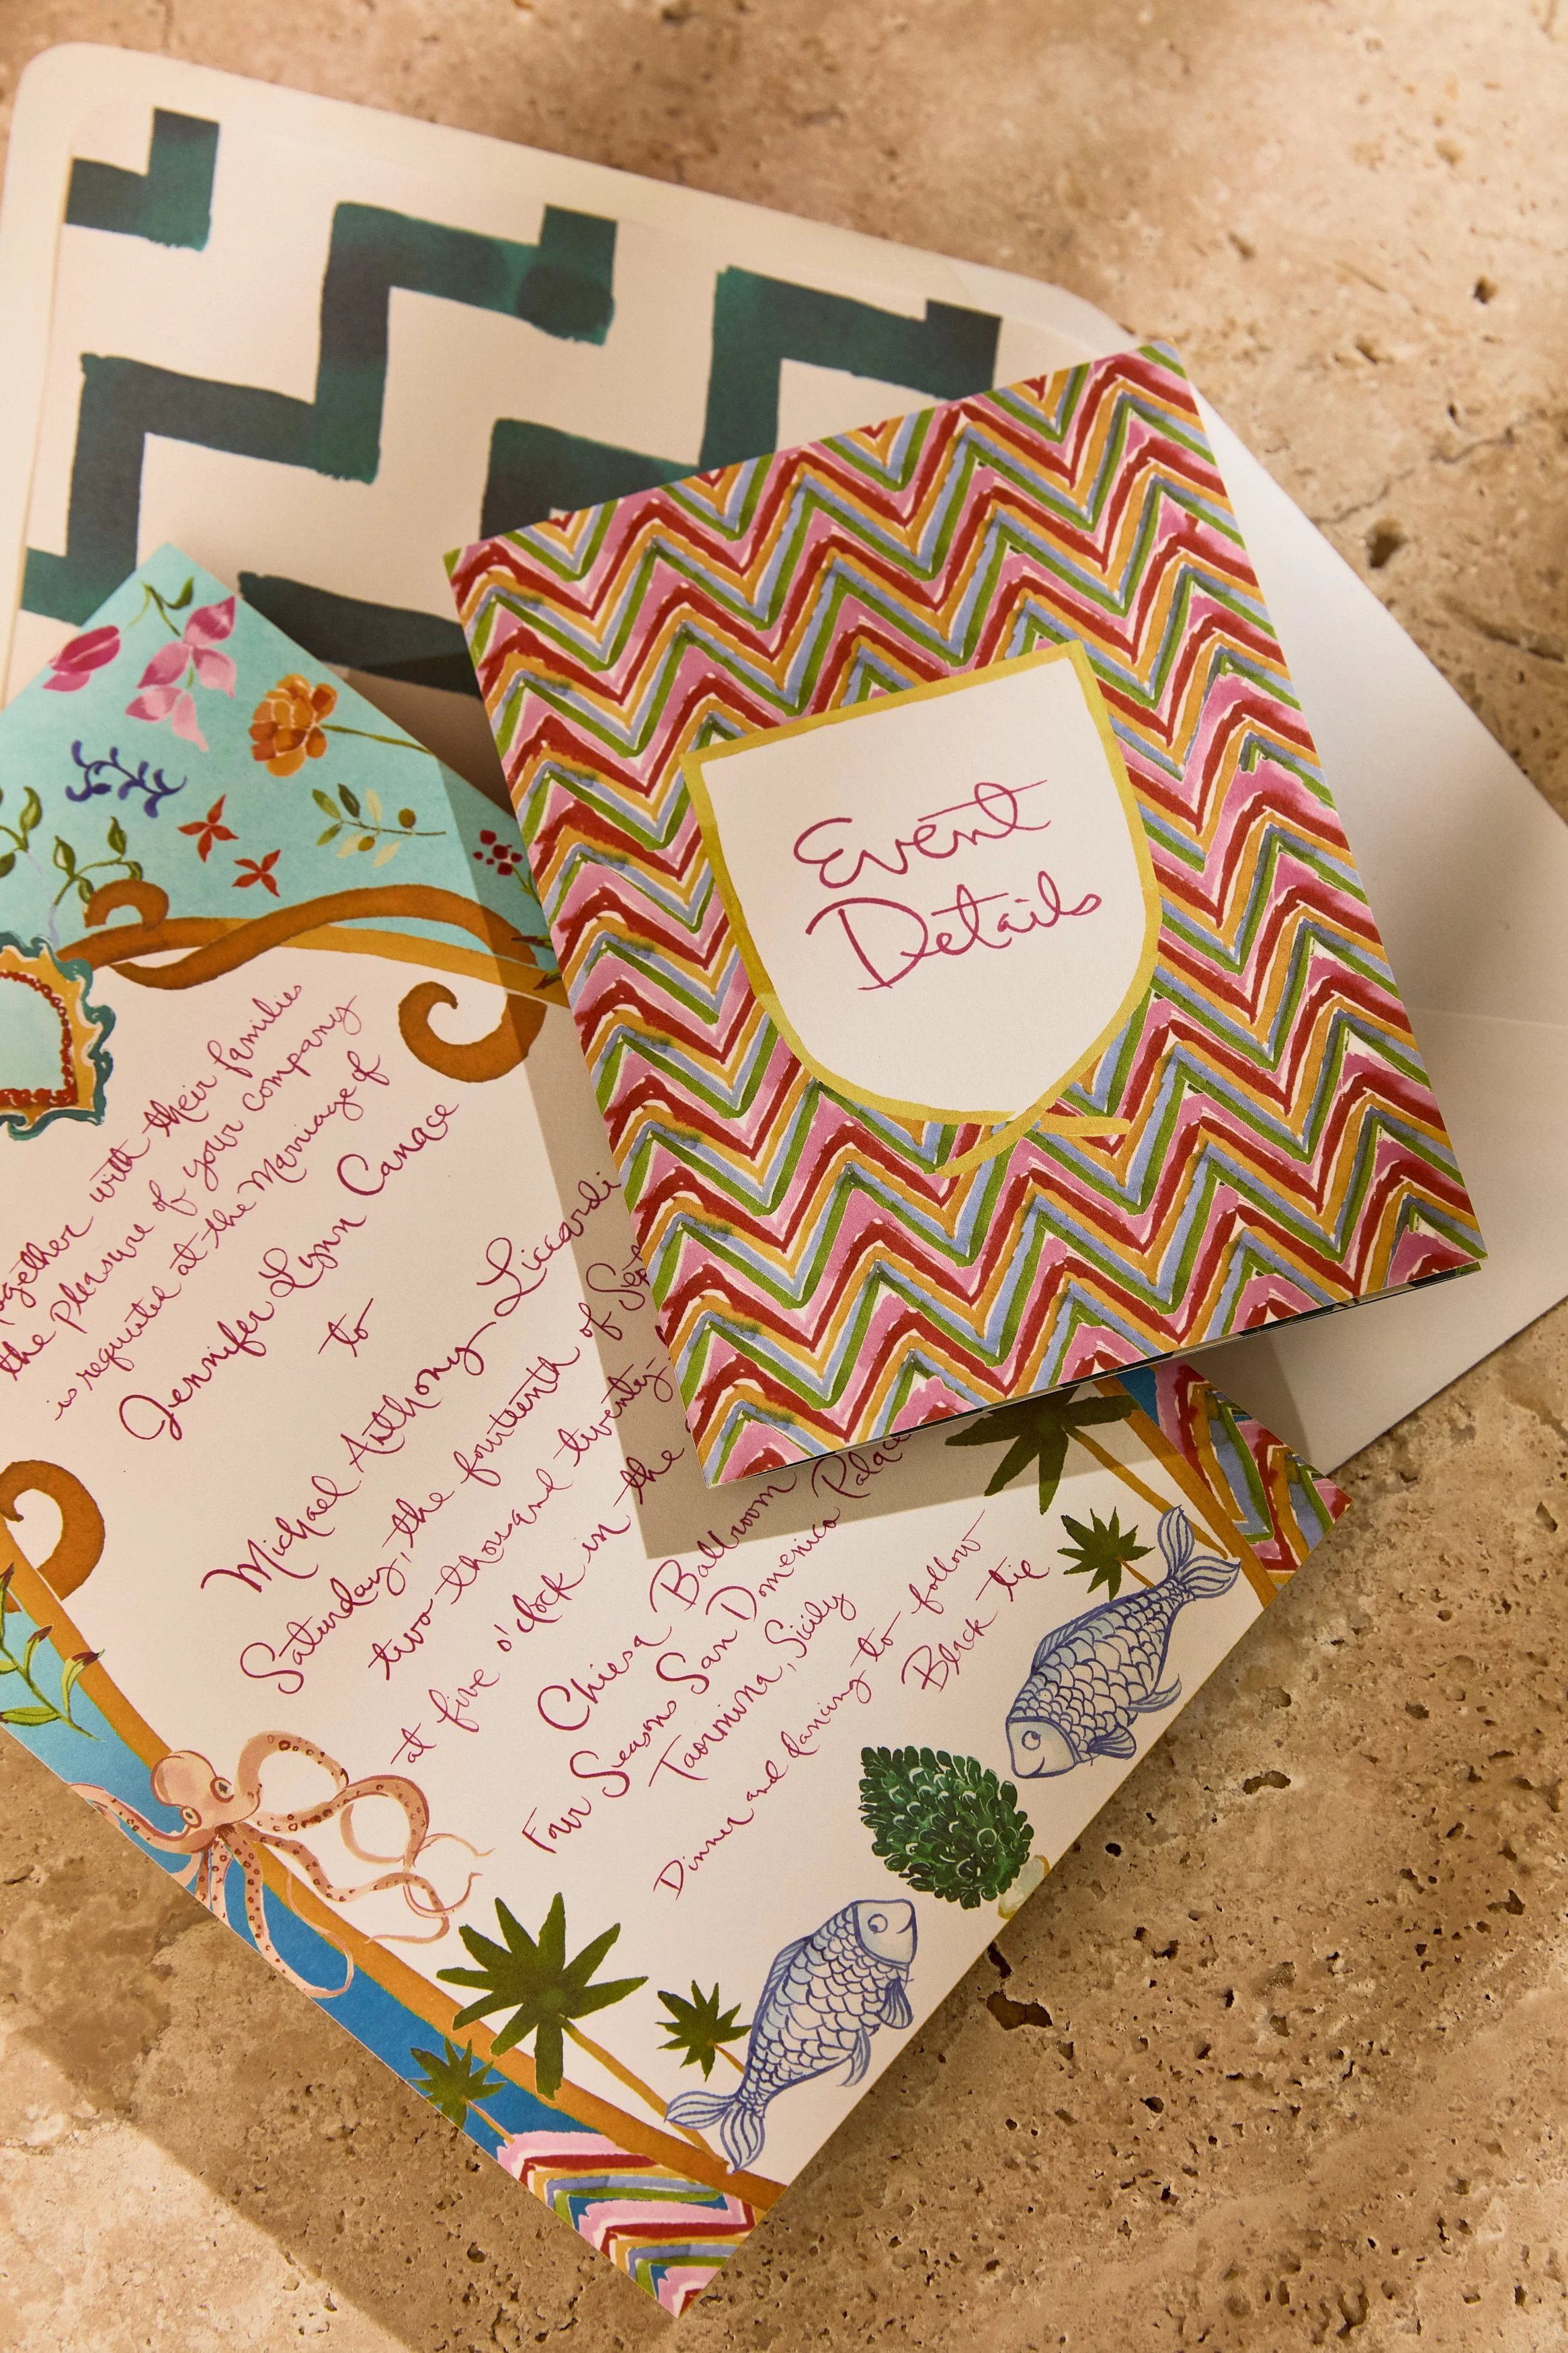 Event
Details
together with their families
the pleasure of your company
is requested at the Marriage of
Jennifer Lynn Canace
to
Michael Anthony Liccardi
Saturday, the fourteenth of Sept
two thousand twenty-
at five o'clock in the
Chiesa Ballroom
Four Seasons San Domenico Palace
Taormina, Sicily
Dinner and dancing to follow
Black tie